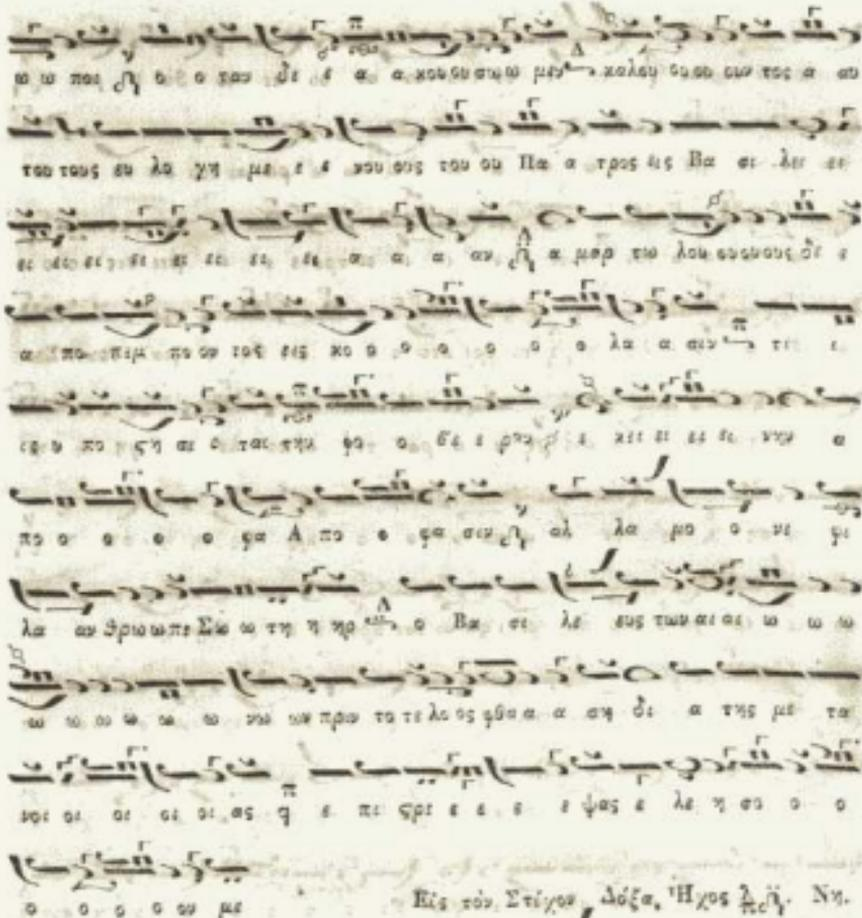 ω ω ποι ο ο ταν δε ε α α κου ου σω ω μεν καλου ου ου ουν τος α αυ
του τους ευ λο γη με ε ε νου ους του ου Πα α τρος εις Βα σι λει ει
ει ει ει ει ει ει ει ει α α α αν α μαρ τω λου ου ου ους δε ε
α πο πεμ πο ον τος εις κο ο ο ο ο ο ο λα α σιν τις ι
ις υ πο ςη σε ε ται την φο ο βε ε ραν ε κει ει ει ει νην α
πο ο ο ο ο φα Α πο ο φα σιν αλ λα μο ο νε φι
λα αν θρω ω πε Σω ω τη η ηρ ο Βα σι λε ευς των αι αι ω ω ω
ω ω ω ω ω ω νω ων πριν το τε λο ος φθα α α ση δι α της με τα
νοι οι οι οι οι ας ε πι ςρε ε ε ε ε ψας ε λε η σο ο ο
ο ο ο ο ον με Εἰς τὸν Στίχον, Δόξα, Ἦχος Νη.